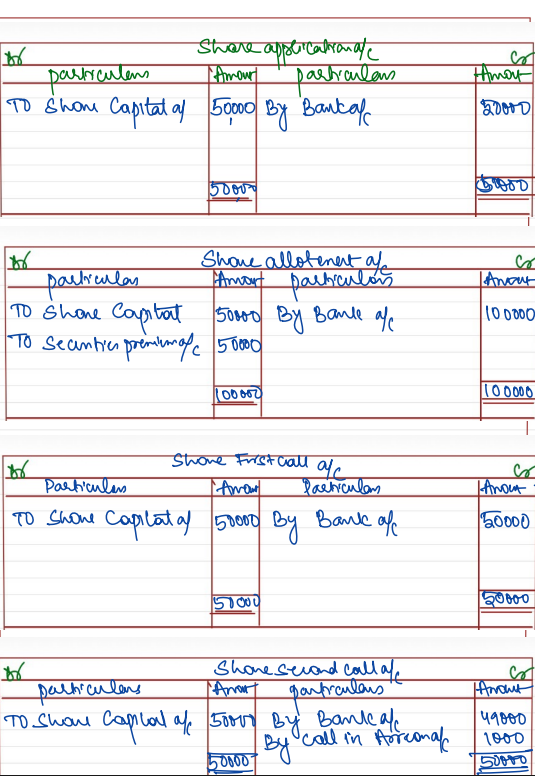 Share application a/c
Dr Cr
particulars Amount particulars Amount
TO Share Capital a/ 50000 By Bank a/c 50000
50000 50000
Share allotment a/c
Dr Cr
particulars Amount particulars Amount
TO Share Capital 50000 By Bank a/c 100000
TO Securities premium a/c 50000
100000 100000
Share First call a/c
Dr Cr
Particulars Amount Particulars Amount
TO Share Capital a/ 50000 By Bank a/c 50000
50000 50000
Share second call a/c
Dr Cr
particulars Amount particulars Amount
TO Share Capital a/c 50000 By Bank a/c 49000
By call in Arrear a/c 1000
50000 50000